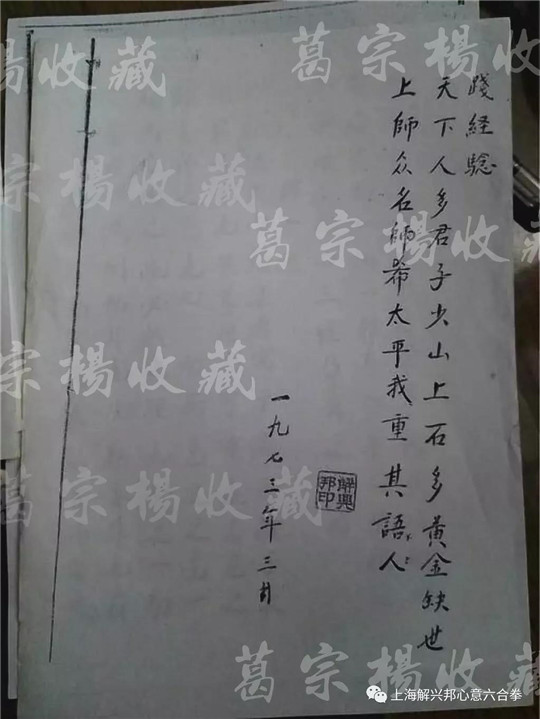 踐経騐
天下人多君子少山上石多黃金缺世
上師众名師希太平我重其語人
解興邦印
一九七三年三月
葛宗楊收藏
楊收藏
宗楊收藏
葛宗楊收
宗楊收藏
葛宗楊收藏
葛宗楊收藏
上海解兴邦心意六合拳